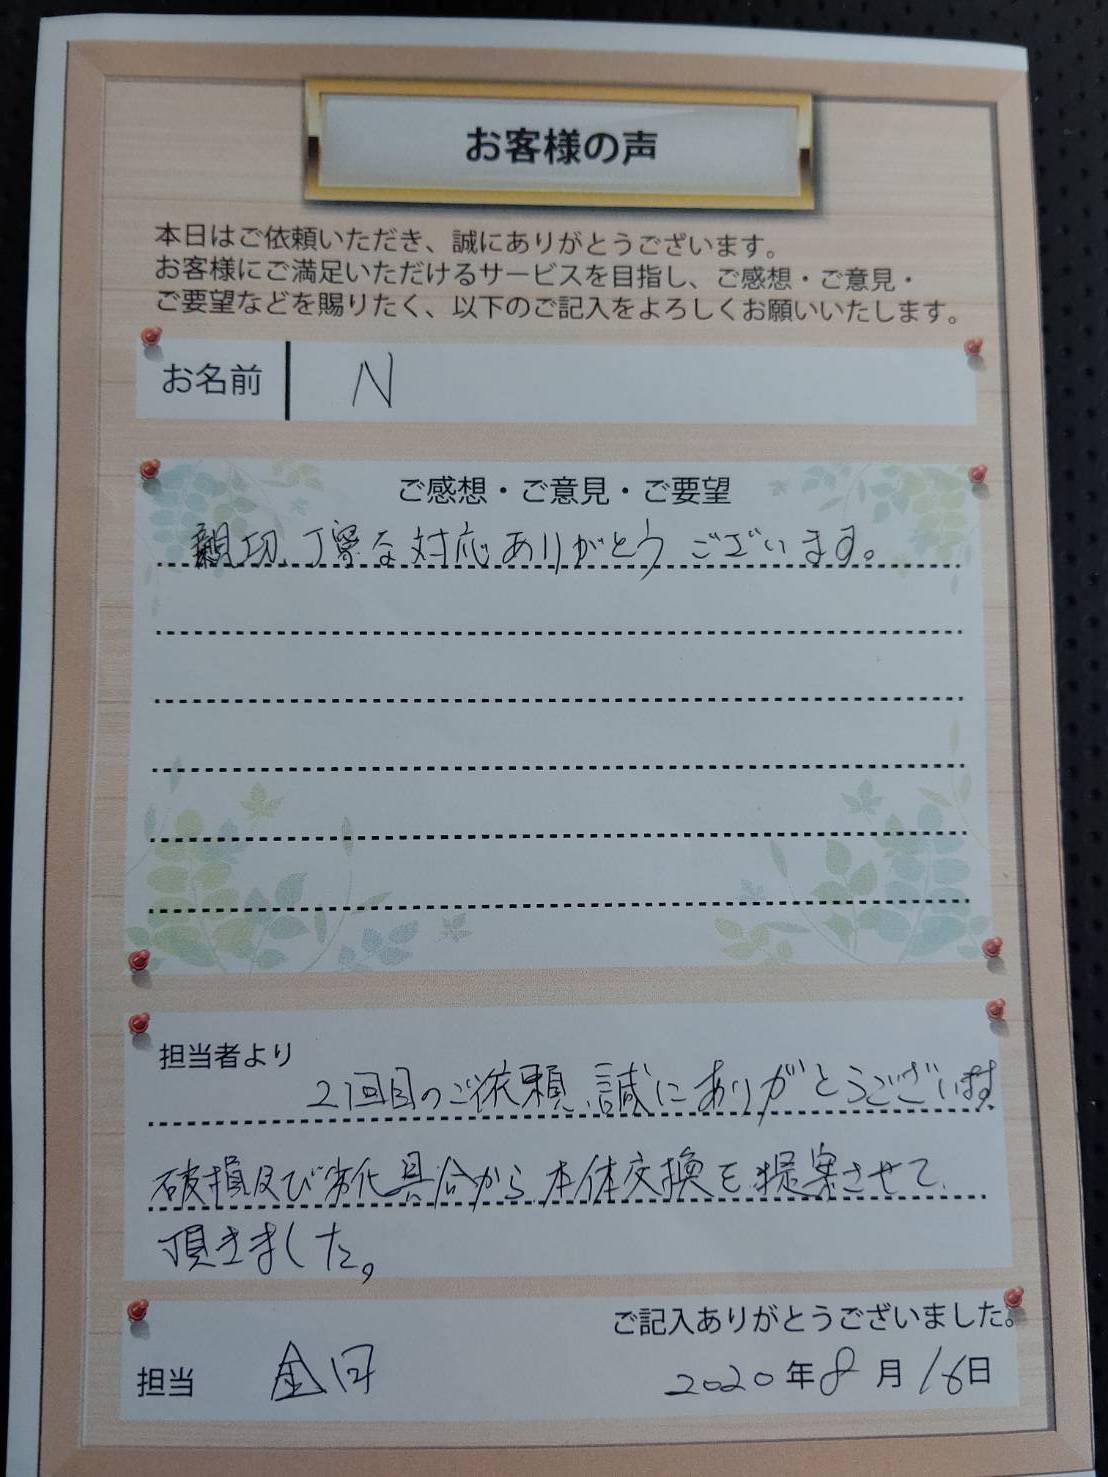 お客様の声
本日はご依頼いただき、誠にありがとうございます。
お客様にご満足いただけるサービスを目指し、ご感想・ご意見・
ご要望などを賜りたく、以下のご記入をよろしくお願いいたします。
お名前 N
ご感想・ご意見・ご要望
親切、丁寧な対応ありがとうございます。
担当者より
2回目のご依頼、誠にありがとうございます
破損及び劣化具合から、本体交換を提案させて
頂きました。
ご記入ありがとうございました。
担当 金田
2020年8月16日